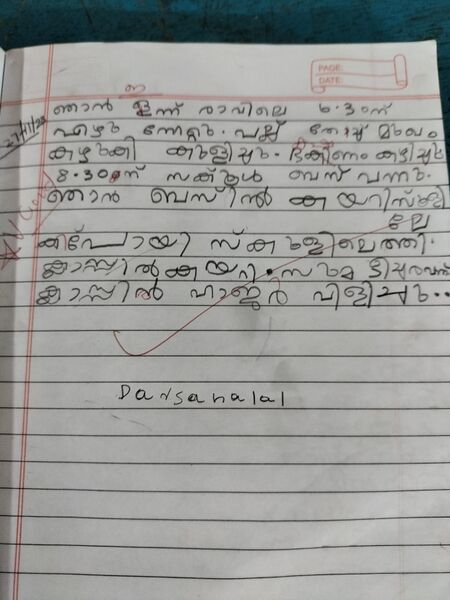 PAGE:
DATE:
ഇ
ഞാൻ ഇന്ന് രാവിലെ 6.30ന്
എഴുന്നേറ്റു. പല്ല് തേച്ചു മുഖം
കഴുകി കുളിച്ചു. ഭക്ഷണം കഴിച്ചു
8.30ന് സ്കൂൾ ബസ് വന്നു.
ഞാൻ ബസിൽ കയറി സ്കൂളി
ലേ
ക്പോയി സ്കൂളിലെത്തി.
ക്ലാസ്സിൽ കയറി. സുമ ടീച്ചർ വന്ന്
ക്ലാസ്സിൽ ഹാജർ വിളിച്ചു..
Darsanalal